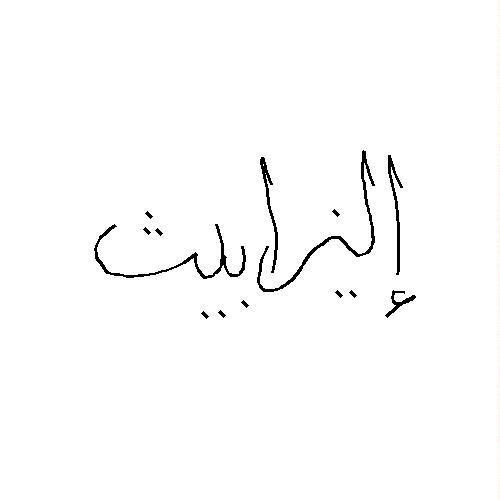 إليزابيث